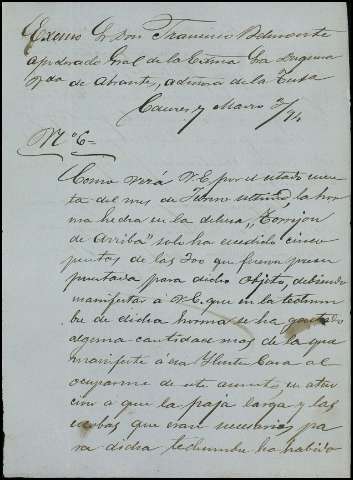 Excmo Sr Don Francisco Belmonte
apoderado Gral de la Excma Sra Duquesa
Vda de Abrantes, admora de la
Caceres 7 Marzo 2/94
Nº 6=
Como verá V.E. por el estado cuenta
del mes de Junio la hor
ma hecha en la dehesa "Torrejon
de Arriba" solo ha cinco
puntos de las 700 que fueron presu
puestada para dicho objeto, debiendo
manifestar á V.E. que en la techum
bre de dicha horma se ha gastado
alguna cantidad mas de la que
manifesté á esa Ilustre Casa al
ocuparme de este asunto, en aten
cion a que la paja larga y las
escobas que eran necesarias pa
ra dicha techumbre ha habido